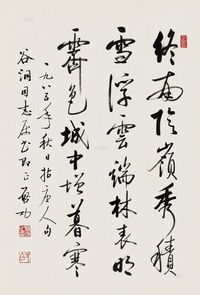 终南阴岭秀积
雪浮云端林表明
霁色城中增暮寒
一九八三年秋日拈唐人句
谷润同志属书即正 启功